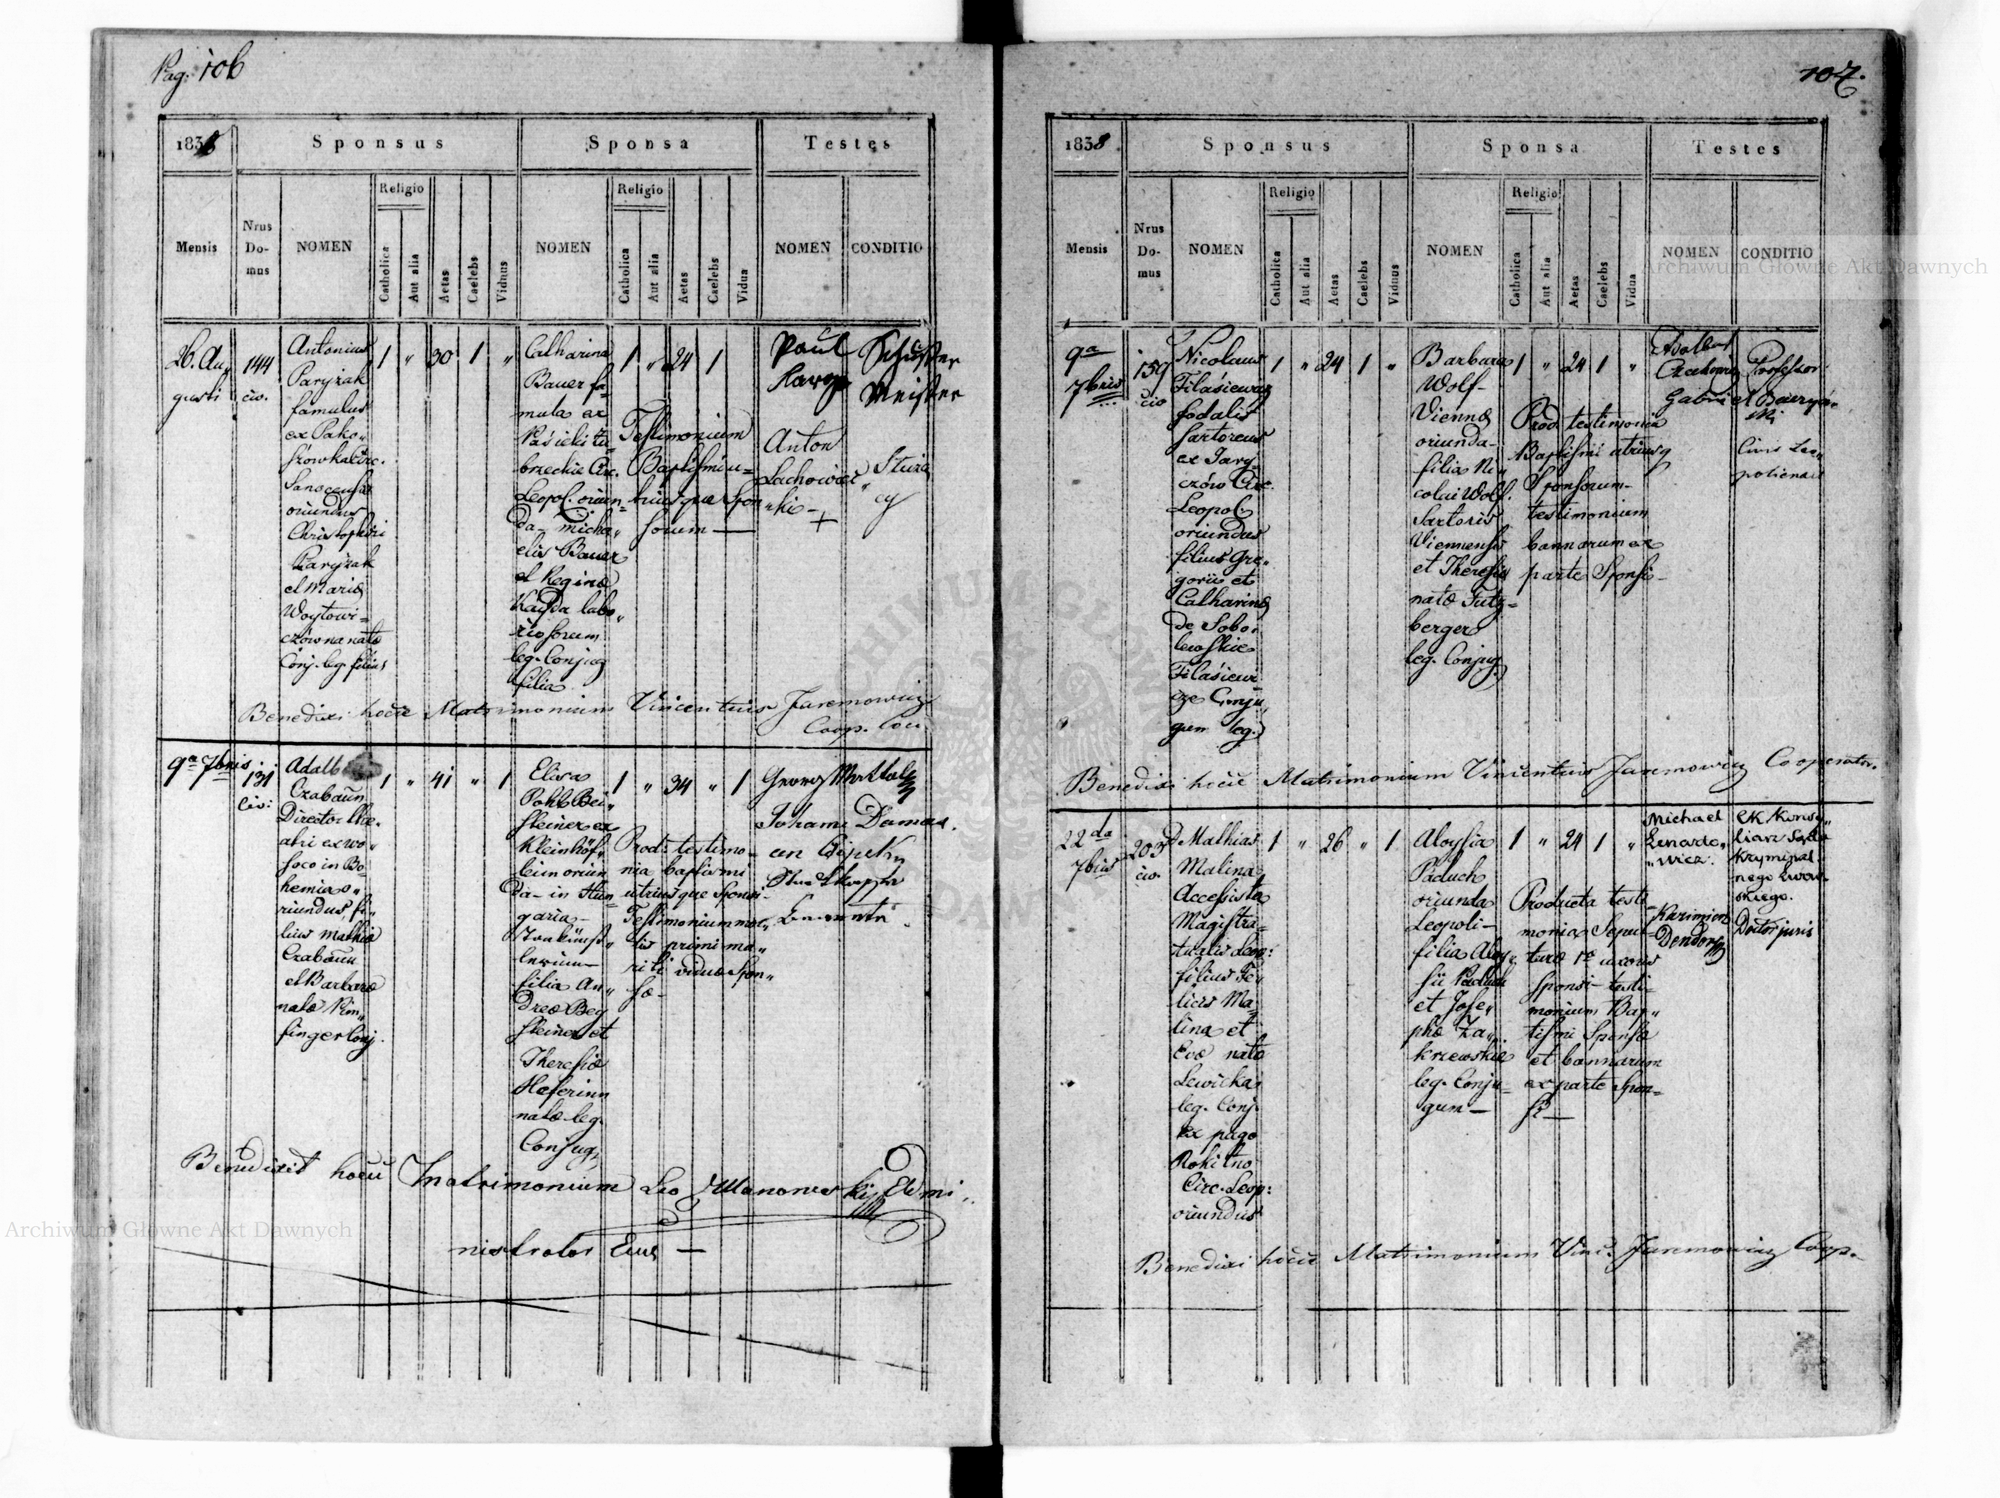 Pag: 106
1838
Sponsus
Sponsa
Testes
Mensis
Nrus Do- mus
NOMEN
Religio
Catholica
Aut alia
Aetas
Caelebs
Viduus
NOMEN
Religio
Catholica
Aut alia
Aetas
Caelebs
Vidua
NOMEN
CONDITIO
26. Au„
gusti
144
civ.
Antonius
Paryżak
famulus
ex Pako„
szowka Circ.
Sanocensis
oriundus
Christophori
Paryżak
et Maria
Woytowi=
czówna nata
Conj. leg. filius
1 „ 30 1 „
Catharina
Bauer fa=
mula ex
brzechie Circ.
Leopol. oriun=
da – Micha„
elis Bauer
et Regina
Kayda labo„
riosorum
leg. Conjug
filia
1 „ 24 1
Testimonium
Baptismi u=
triusque Spon„
sorum —
Paul
Schuster
Meister
Anton
Lachowic
ki – +
Benedixi hocce Matrimonium Vincentius Jaremowicz
Coop. loci
9a 7bris
131
civ:
Adalb
Czabaun
Director The„
atri ex Wo„
soco in Bo„
hemia o„
riundus fi„
lius Mathia
Czabaun
et Barbara
nata Rim„
finger Conj.
1 „ 41 „ 1
Elisa
Pohl Bei„
steiner ex
Kleinhöf„
lein oriun
da – in Hun„
garia –
filia An„
dreæ Bey
steiner et
Theresiæ
Haferinn
nata leg.
Conjug
1 „ 34 „ 1
Prod: testimo„
nia baptismi
utriusque Sponsi
Testimonium mor„
tis primi ma„
riti viduæ Spon„
sæ –
Georg
Johann
Benedixit hocce Matrimonium Leo Ullanowski Admi„
nistrator Eccl —
107.
1838
Sponsus
Sponsa
Testes
Mensis
Nrus Do- mus
NOMEN
Religio
Catholica
Aut alia
Aetas
Caelebs
Viduus
NOMEN
Religio
Catholica
Aut alia
Aetas
Caelebs
Vidua
NOMEN
CONDITIO
9a
7bris
159
civ
Nicolaus
Filasiewicz
Sodalis
Sartoreus
ex Jary„
czów Circ.
Leopol.
oriundus
filius Gre„
gorii et
Catharina
de Sobo„
lewskie
Filasiewi„
cze Conju„
gum leg.
1 „ 24 1 „
Barbara
Wolf –
Vienna
oriunda –
filia Ni„
colai Wolf.
Sartoris
Viennensis
et Theresia
nata Futz=
berger
leg. Conjug.
1 „ 24 1 „
Prod. testimonia
Baptismi utriusq
Sponsorum –
testimonium
bannorum ex
parte Sponsi –
Professor
Civis Leo„
poliensis
Benedixi hocce Matrimonium Vincentius Jaremowicz Cooperator.
22da
7bris
203
civ.
Mathias
Malina
Accesista
Magistra„
tualis Leop:
filius Fe„
licis Ma„
lina et
Evæ nata
Lewicka
leg. Conj.
ex pago
Rokitno
Circ. Leop:
oriundus
1 „ 26 „ 1
Aloysia
Paduch
oriunda
Leopoli –
filia Aloy„
sii Paduch
et Jose„
pha Za„
krzewskie
leg. Conju„
gum —
1 „ 24 1 „
Producta testi„
monia Sepul„
turæ 1æ uxoris
Sponsi – testi„
monium Bap„
tismi Sponsæ
et bannorum
ex parte Spon„
si —
Michael
Lenarto„
„wicz.
CK Konsy„
liarz Sądu
Krymynal„
nego Lwow„
skiego.
Kazimierz
Doktor juris
Benedixi hocce Matrimonium Vinc. Jaremowicz Coop.
Archiwum Główne Akt Dawnych
Archiwum Główne Akt Dawnych